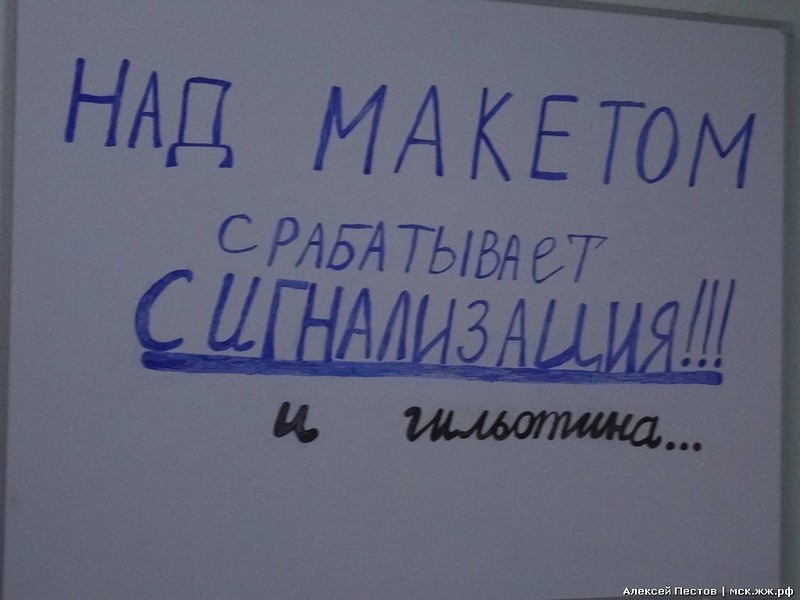 НАД МАКЕТОМ
СРАБАТЫВАЕТ
СИГНАЛИЗАЦИЯ!!!
и гильотина...
Алексей Пестов | мск.жж.рф